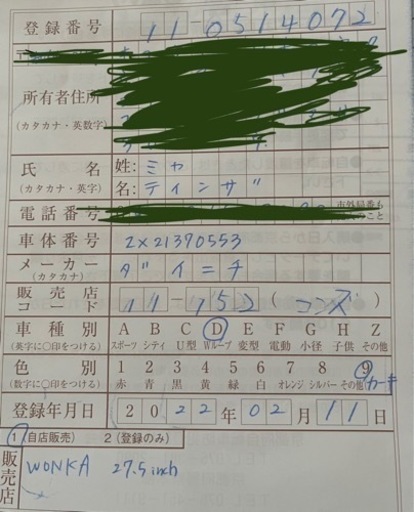 登録番号 11-0514072
所有者住所
(カタカナ・英数字)
氏 名 姓: ミャ
(カタカナ・英字) 名: ティンザ゛
電話番号 市外局番も
こと
車体番号 2×21370553
メーカー ダイニチ
(カタカナ)
販売店 コード 11-152 (コンズ)
車種別 A B C D E F G H Z
(英字に○印をつける) スポーツ シティ U型 Wループ 変型 電動 小径 子供 その他
色別 1 2 3 4 5 6 7 8 9
(数字に○印をつける) 赤 青 黒 黄 緑 白 オレンジ シルバー その他 カーキ
登録年月日 2022年02月11日
1 (自店販売) 2 (登録のみ)
販売店 WONKA 27.5inch